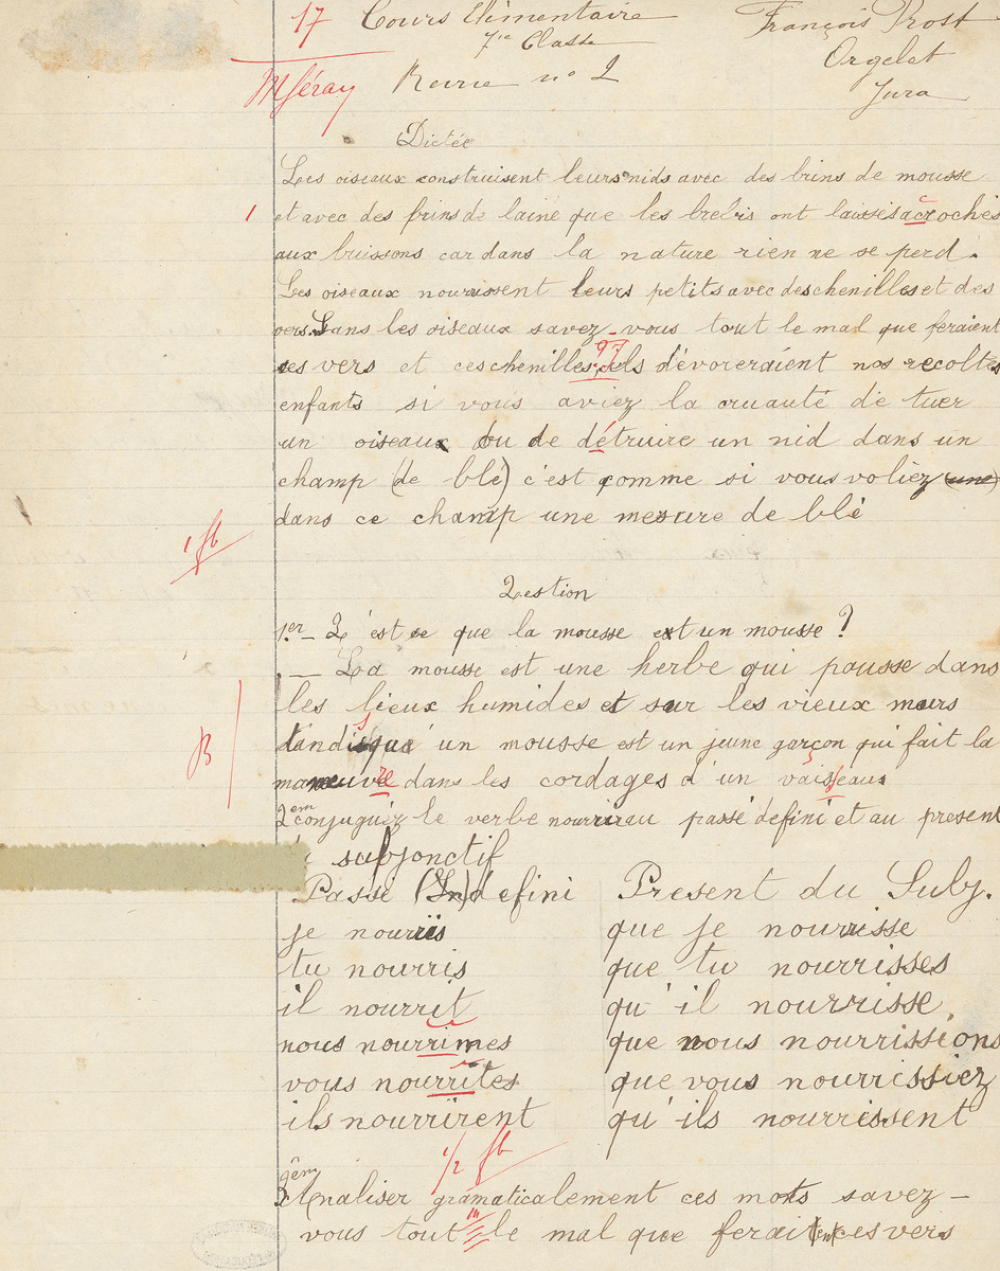 17 Cours Elémentaire François Prost
7ie Classe Orgelet
Mféray Revue no 2 Jura
Dictée
Les oiseaux construisent leurs nids avec des brins de mousse
1 et avec des frins de laine que les brebis ont laissés acrochés
aux buissons car dans la nature rien ne se perd.
Les oiseaux nourrissent leurs petits avec des chenilles et des
vers. Sans les oiseaux savez-vous tout le mal que feraient
ses vers et ces chenilles ils dévoreraient nos recoltes
enfants si vous aviez la cruauté de tuer
un oiseaux ou de détruire un nid dans un
champ (de blé) c'est comme si vous voliez (une)
dans ce champ une mesure de blé
1 ft
Question
1.er - Q'est se que la mousse et un mousse ?
- La mousse est une herbe qui pousse dans
les lieux humides et sur les vieux murs
tandisque un mousse est un jeune garçon qui fait la
B maneuvre dans les cordages d'un vaisseaux
2em conjuguez le verbe nourrir au passé defini et au present
subjonctif
Passé (In)defini Present du Subj.
je nourris que je nourrisse
tu nourris que tu nourrisses
il nourrit qu'il nourrisse,
nous nourrimes que nous nourrissions
vous nourrites que vous nourrissiez
ils nourrirent qu'ils nourrissent
1/2 ft
3em Analiser gramaticalement ces mots savez-
vous tout le mal que ferait ces vers